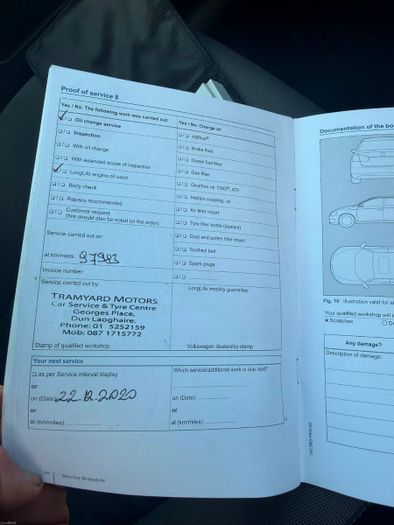 Proof of service 8
Yes / No. The following work was carried out:
Oil change service
Inspection
With oil change
With extended scope of inspection
LongLife engine oil used
Body check
Repairs recommended
Customer request
(this should also be noted on the order)
Service carried out on:
at km/miles: 97983
Invoice number:
Service carried out by
TRAMYARD MOTORS
Car Service & Tyre Centre
Georges Place,
Dun Laoghaire.
Phone: 01 5252159
Mob: 087 1715772
Stamp of qualified workshop
Yes / No. Change of:
AdBlue®
Brake fluid
Diesel fuel filter
Gas filter
Gearbox oil: DSG®, ATF
Haldex coupling: oil
Air filter insert
Tyre filler bottle (sealant)
Dust and pollen filter insert
Toothed belt
Spark plugs
LongLife mobility guarantee:
Volkswagen dealership stamp
Your next service
as per Service interval display
or
on (Date) 22.12.2020
or
at (km/miles):
Which service/additional work is due next?
on (Date):
or
at (km/miles):
Service Schedule
Documentation of the bo
Fig. 10 Illustration valid for al
Your qualified workshop will
Scratches
Any damage?
Description of damage: